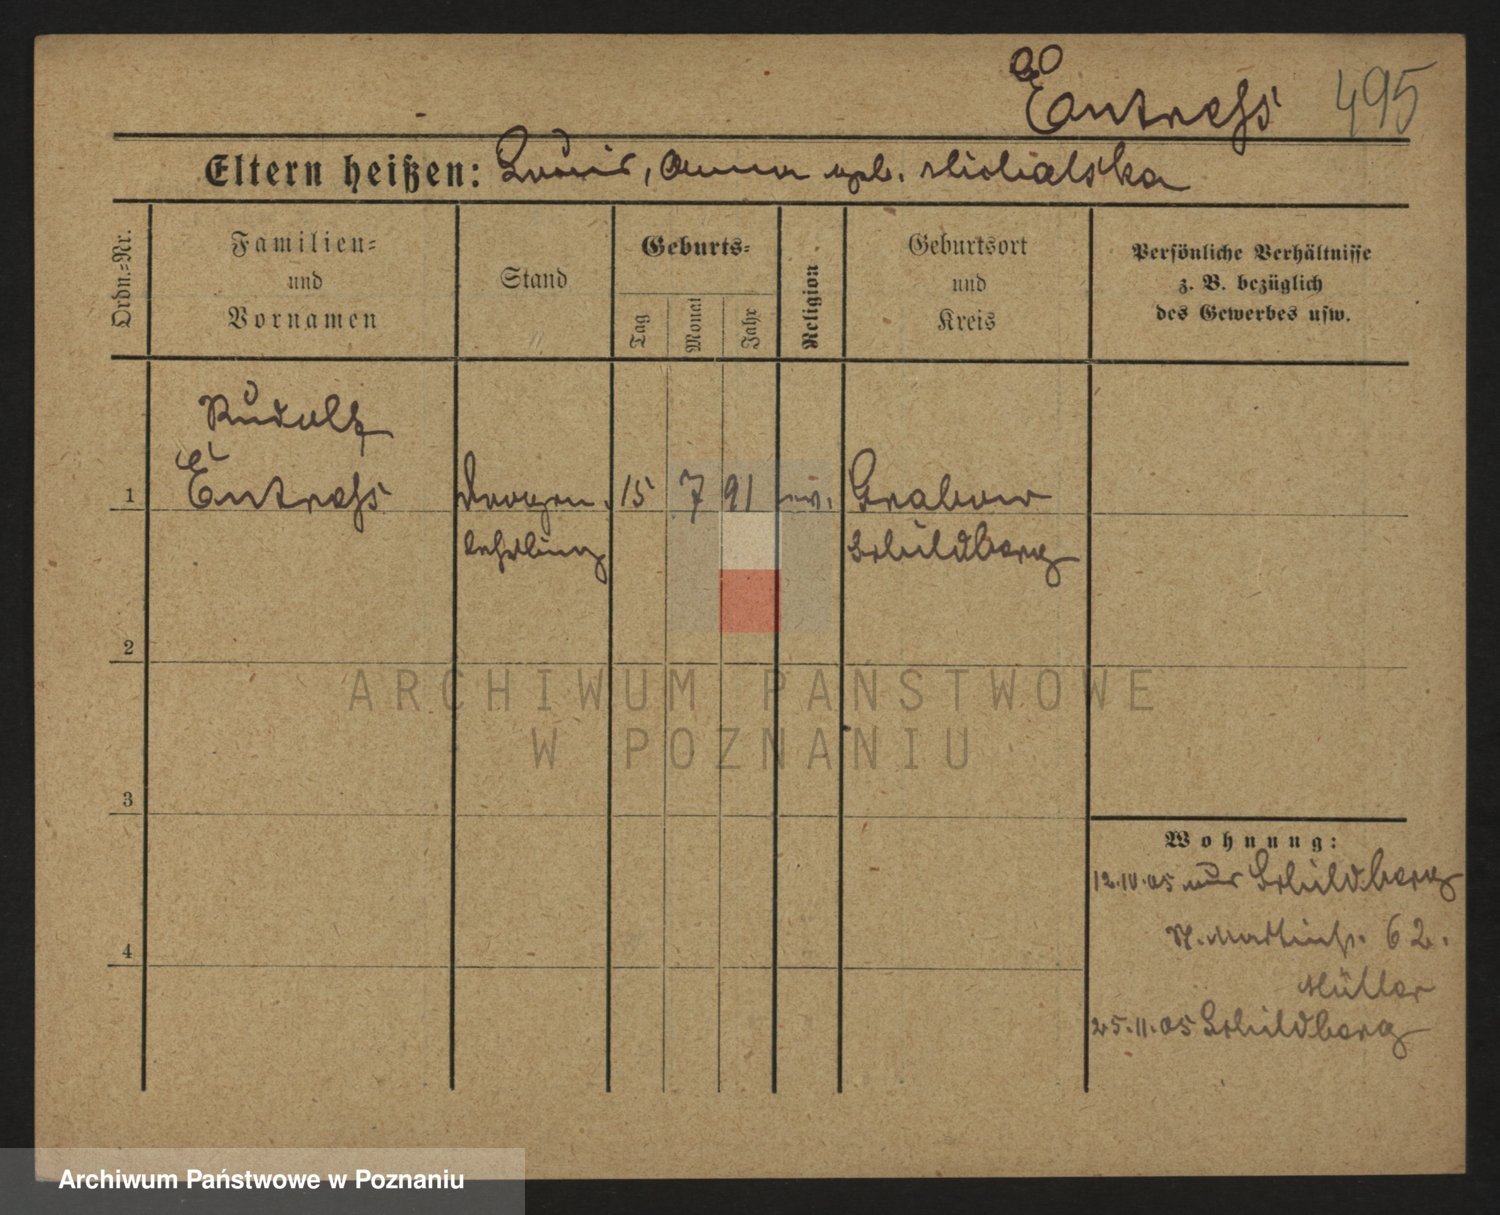 Entress 495
Eltern heißen: Louis, Anna geb. Michalska
Ordn.-Nr.
Familien-
und
Vornamen
Stand
Geburts-
Tag
Monat
Jahr
Religion
Geburtsort
und
Kreis
Persönliche Verhältnisse
z. B. bezüglich
des Gewerbes usw.
Rudolf
1 Entress Drogen- 15 7 91 ev. Grabow
lehrling Schildberg
2
ARCHIWUM PAŃSTWOWE
W POZNANIU
3
4
Wohnung:
12.10.05 aus Schildberg
St. Martinstr. 62.
Müller
25.11.05 Schildberg
Archiwum Państwowe w Poznaniu